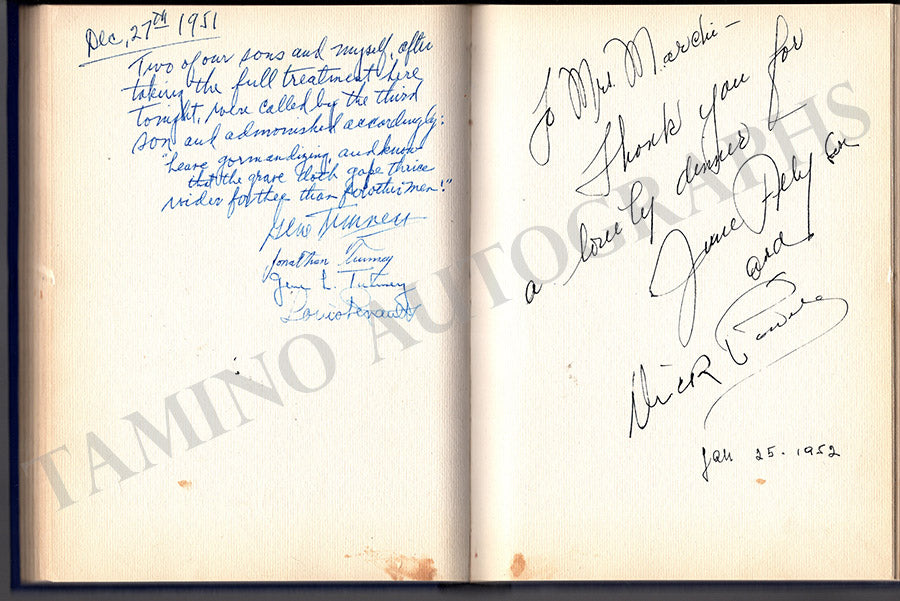 Dec, 27th 1951
Two of our sons and myself, after
taking the full treatment here
tonight, were called by the third
son and admonished accordingly:
"Leave gormandizing, and know
that the grave doth gape thrice
wider for thee than for other men!"
Gene Tunney
Jonathan Tunney
Gene L. Tunney
To Mrs. Marchi –
Thank you for
a lovely dinner
June
and
Nick
Jan 25 - 1952
TAMINO AUTOGRAPHS